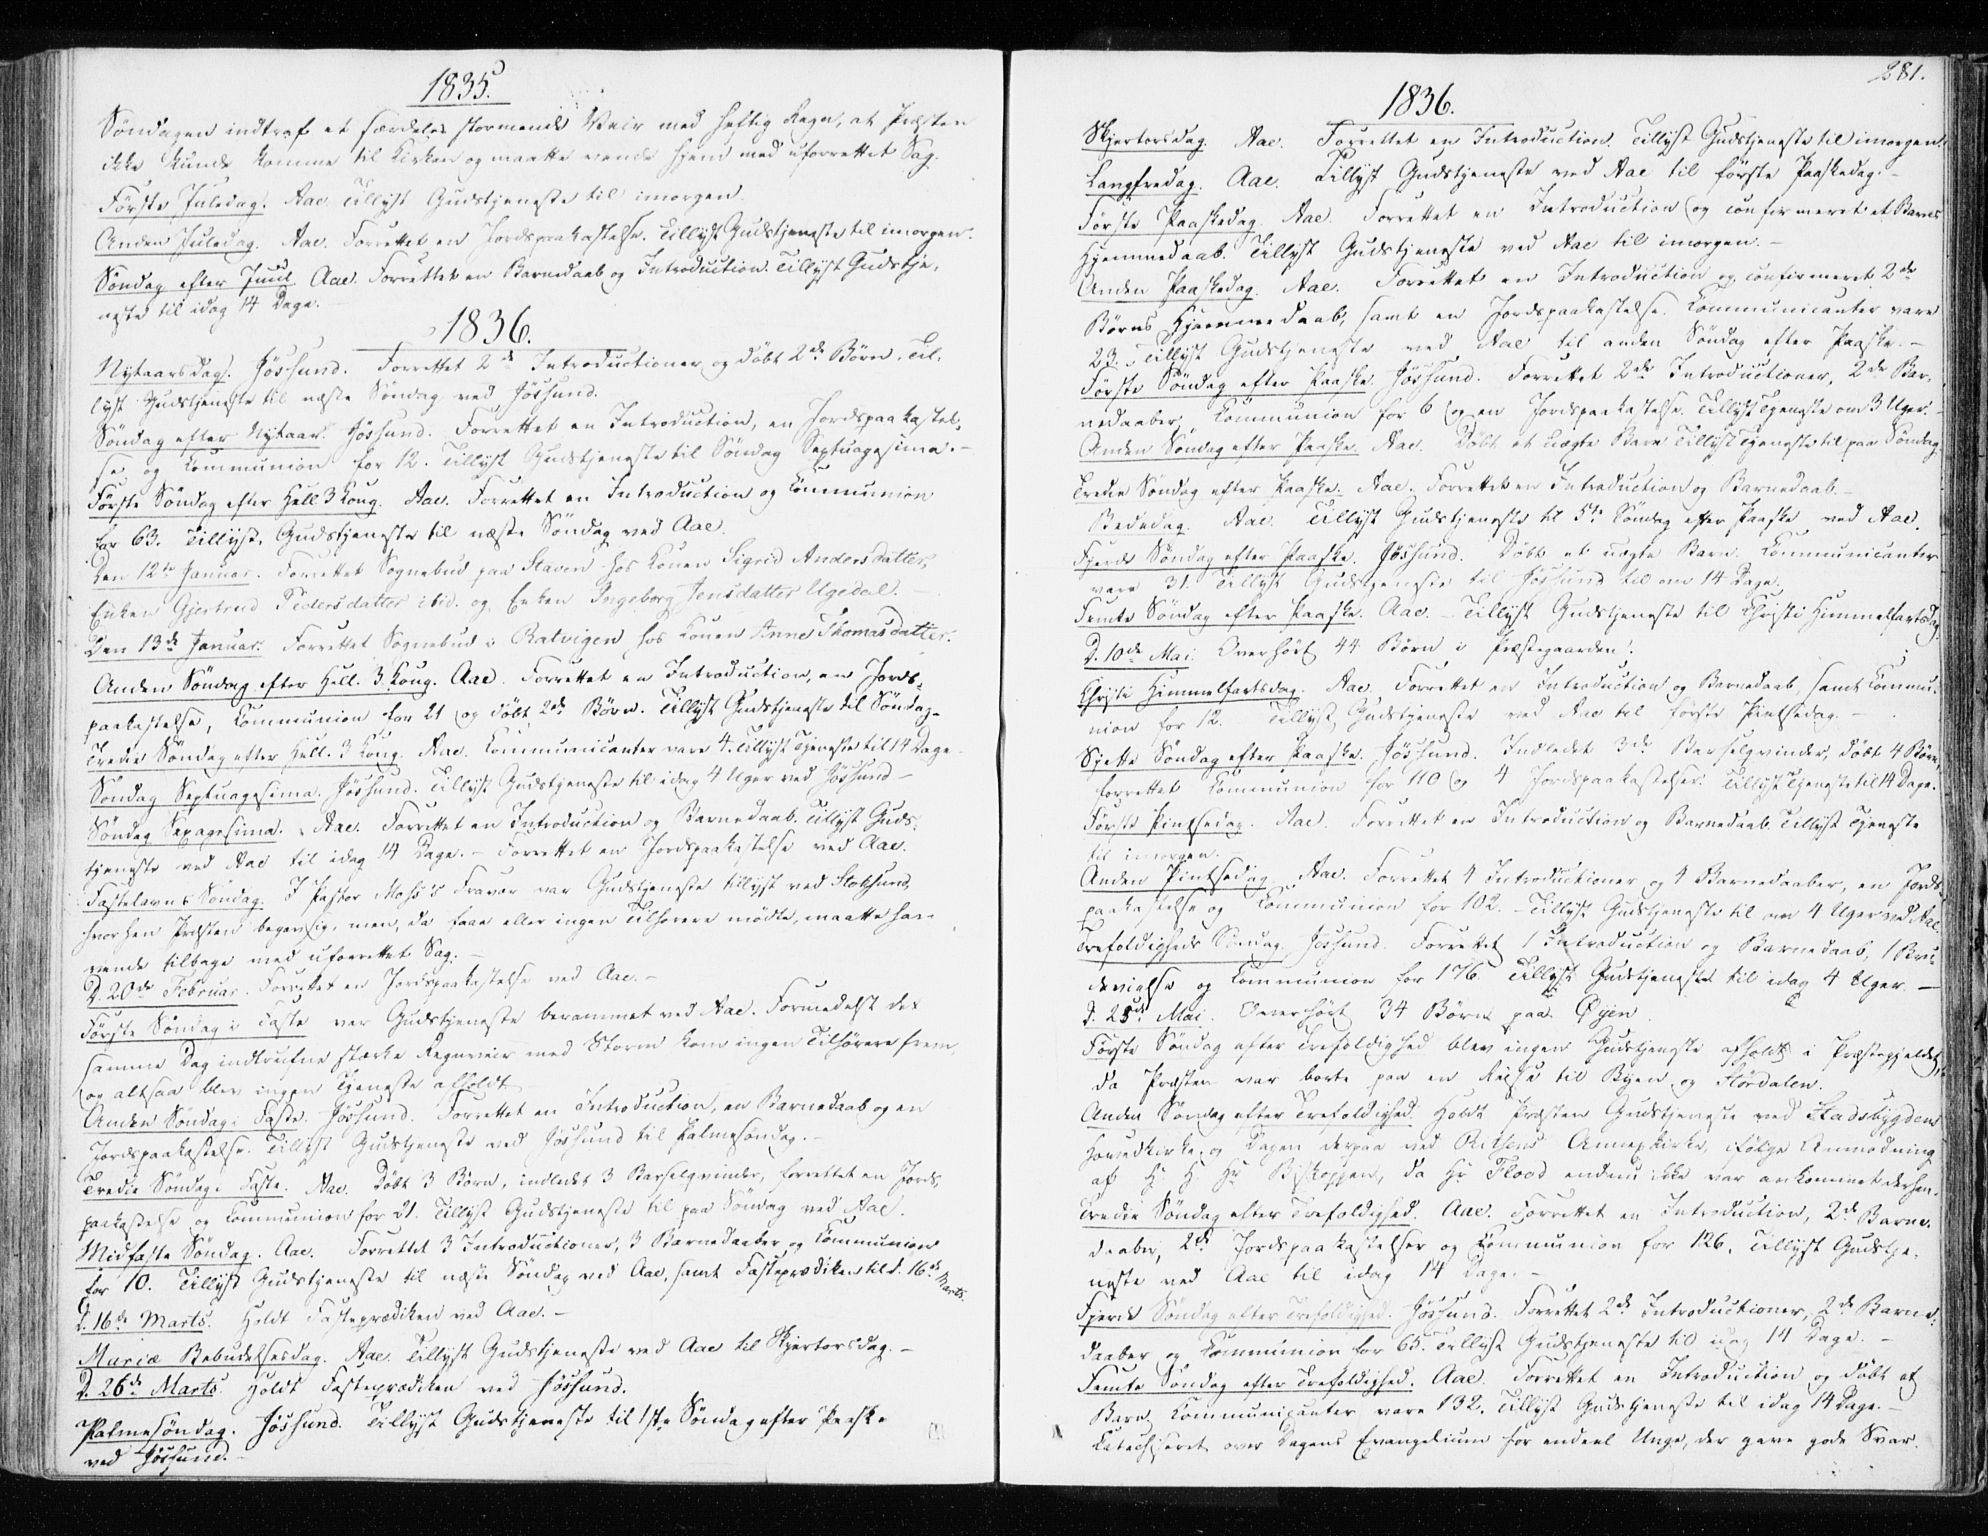 1835.
Søndagen indtraf et særdeles stormende Veir med heftig Regn, at Præsten
ikke kunde komme til Kirken og maatte vende hjem med uforrettet Sag.
Første Juledag. Aae. Tillyst Gudstjeneste til imorgen.
Anden Juledag. Aae. Forrettet en Jordspaakastelse. Tillyst Gudstjeneste til imorgen.
Søndag efter Juul. Aae. Forrettet en Barnedaab og Introduction. Tillyst Gudstje-
neste til idag 14 Dage.
1836.
Nytaarsdag. Jøssund. Forrettet 2de Introductioner og døbt 2de Børn. Til-
lyst Gudstjeneste til næste Søndag ved Jøssund.
Søndag efter Nytaar. Jøssund. Forrettet en Introduction, en Jordspaakastel-
se og Communion for 12. Tillyst Gudstjeneste til Søndag Septuagesima. -
Første Søndag efter Hell. 3 Kong. Aae. Forrettet en Introduction og Communion
for 63. Tillyst Gudstjeneste til næste Søndag ved Aae.
Den 12te Januar. Forrettet Sognebud paa Staven hos Konen Sigrid Andersdatter,
Enken Gjertrud Pedersdatter ibid. og Enken Ingeborg Jensdatter Ugedal. -
Den 13de Januar. Forrettet Sognebud i Ratvigen hos Konen Anne Thomasdatter.
Anden Søndag efter Hell. 3 Kong. Aae. Forrettet en Introduction, en Jords-
paakastelse, Communion for 21 og døbt 2de Børn. Tillyst Gudstjeneste til Søndag.
Tredie Søndag efter Hell. 3 Kong. Aae. Communicanter vare 4. Tillyst Tjeneste til 14 Dage.
Søndag Septuagesima. Jøssund. Tillyst Gudstjeneste til idag 4 Uger ved Jøssund -
Søndag Sexagesima. Aae. Forrettet en Introduction og Barnedaab. Tillyst Guds-
tjeneste ved Aae til idag 14 Dage. - Forrettet en Jordspaakastelse ved Aae.
Fastelavns Søndag. I Pastor Moss's Fravær var Gudstjeneste tillyst ved Stoksund,
hvorhen Præsten begav sig, men, da faae eller ingen Tilhørere mødte, maatte han
vende tilbage med uforrettet Sag. -
D. 20de Februar. Forrettet en Jordspaakastelse ved Aae. -
Første Søndag i Faste var Gudstjeneste berammet ved Aae. Formedelst det
samme Dag indtrufne stærke Regnveir med Storm kom ingen Tilhørere frem
og altsaa blev ingen Tjeneste afholdt.
Anden Søndag i Faste. Jøssund. Forrettet en Introduction, en Barnedaab og en
Jordspaakastelse. Tillyst Gudstjeneste ved Jøssund til Palmesøndag. -
Tredie Søndag i Faste. Aae. Døbt 3 Børn, indledet 3 Barselqvinder, forrettet en Jords-
paakastelse og Communion for 21. Tillyst Gudstjeneste til paa Søndag ved Aae.
Midfaste Søndag. Aae. Forrettet 3 Introductioner, 3 Barnedaaber og Communion
for 10. Tillyst Gudstjeneste til næste Søndag ved Aae, samt Fasteprædiken til d. 16de Marts.
D. 16de Marts. Holdt Fasteprædiken ved Aae. -
Mariæ Bebudelsesdag. Aae. Tillyst Gudstjeneste ved Aae til Skjertorsdag. -
D. 26de Marts. Holdt Fasteprædiken ved Jøssund.
Palmesøndag. Jøssund. Tillyst Gudstjeneste til 1ste Søndag efter Paaske
ved Jøssund. -
281.
1836.
Skjertorsdag. Aae. Forrettet en Introduction. Tillyst Gudstjeneste til imorgen.
Langfredag. Aae. Tillyst Gudstjeneste ved Aae til første Paaskedag. -
Første Paaskedag. Aae. Forrettet en Introduction og confirmeret et Barns
Hjemmedaab. Tillyst Gudstjeneste ved Aae til imorgen. -
Anden Paaskedag. Aae. Forrettet en Introduction og confirmeret 2de
Børns Hjemmedaab, samt en Jordspaakastelse. Communicanter vare
23. Tillyst Gudstjeneste ved Aae til anden Søndag efter Paaske. -
Første Søndag efter Paaske. Jøssund. Forrettet 2de Introductioner, 2de Bar-
nedaaber, Communion for 6 og en Jordspaakastelse. Tillyst Tjeneste om 3 Uger. -
Anden Søndag efter Paaske. Aae. Døbt et uægte Barn. Tillyst Tjeneste til paa Søndag.
Tredie Søndag efter Paaske. Aae. Forrettet en Introduction og Barnedaab. -
Bededag. Aae. Tillyst Gudstjeneste til 5te Søndag efter Paaske ved Aae.
Fjerde Søndag efter Paaske. Jøssund. Døbt et uægte Barn. Communicanter
vare 31. Tillyst Gudstjeneste til Jøssund til om 14 Dage.
Femte Søndag efter Paaske. Aae. - Tillyst Gudstjeneste til Christi Himmelfartsdag.
D. 10de Mai. Overhørt 44 Børn i Præstegaarden.
Christi Himmelfartsdag. Aae. Forrettet en Introduction og Barnedaab, samt Commu-
nion for 12. Tillyst Gudstjeneste ved Aae til første Pintsedag. -
Sjette Søndag efter Paaske. Jøssund. Indledet 3de Barselqvinder, døbt 4 Børn,
forrettet Communion for 110 og 4 Jordspaakastelser. Tillyst Tjeneste til 14 Dage.
Første Pintsedag. Aae. Forrettet en Introduction og Barnedaab. Tillyst Tjeneste
til imorgen. -
Anden Pintsedag. Aae. Forrettet 4 Introductioner og 4 Barnedaaber, en Jords-
paakastelse og Communion for 102. - Tillyst Gudstjeneste til om 4 Uger ved Aae.
Trefoldigheds Søndag. Jøssund. Forrettet 1 Introduction og Barnedaab, 1 Bru-
devielse og Communion for 176. Tillyst Gudstjeneste til idag 4 Uger. -
D. 25de Mai. Overhørt 34 Børn paa Øyen.
Første Søndag efter Trefoldighed blev ingen Gudstjeneste afholdt i Præstegjeldet,
da Præsten var borte paa en Reise til Byen og Størdalen.
Anden Søndag efter Trefoldighed. Holdt Præsten Gudstjeneste ved Stadsbygdens
Hovedkirke og Dagen derpaa ved Rissens Annexkirke, ifølge Anmodning
af H. H. Hr. Biskoppen, da Hr Flood endnu ikke var ankommet derhen.
Tredie Søndag efter Trefoldighed. Aae. Forrettet en Introduction, 2de Barne-
daaber, 2de Jordspaakastelser og Communion for 126. Tillyst Gudstje-
neste ved Aae til idag 14 Dage. -
Fjerde Søndag efter Trefoldighed. Jøssund. Forrettet 2de Introductioner, 2de Barne-
daaber og Communion for 65. Tillyst Gudstjeneste til idag 14 Dage. -
Femte Søndag efter Trefoldighed. Aae. Forrettet en Introduction og døbt et
Barn. Communicanter vare 132. Tillyst Gudstjeneste til idag 14 Dage. -
Catechiseret over Dagens Evangelium for endeel Unge, der gave gode Svar.